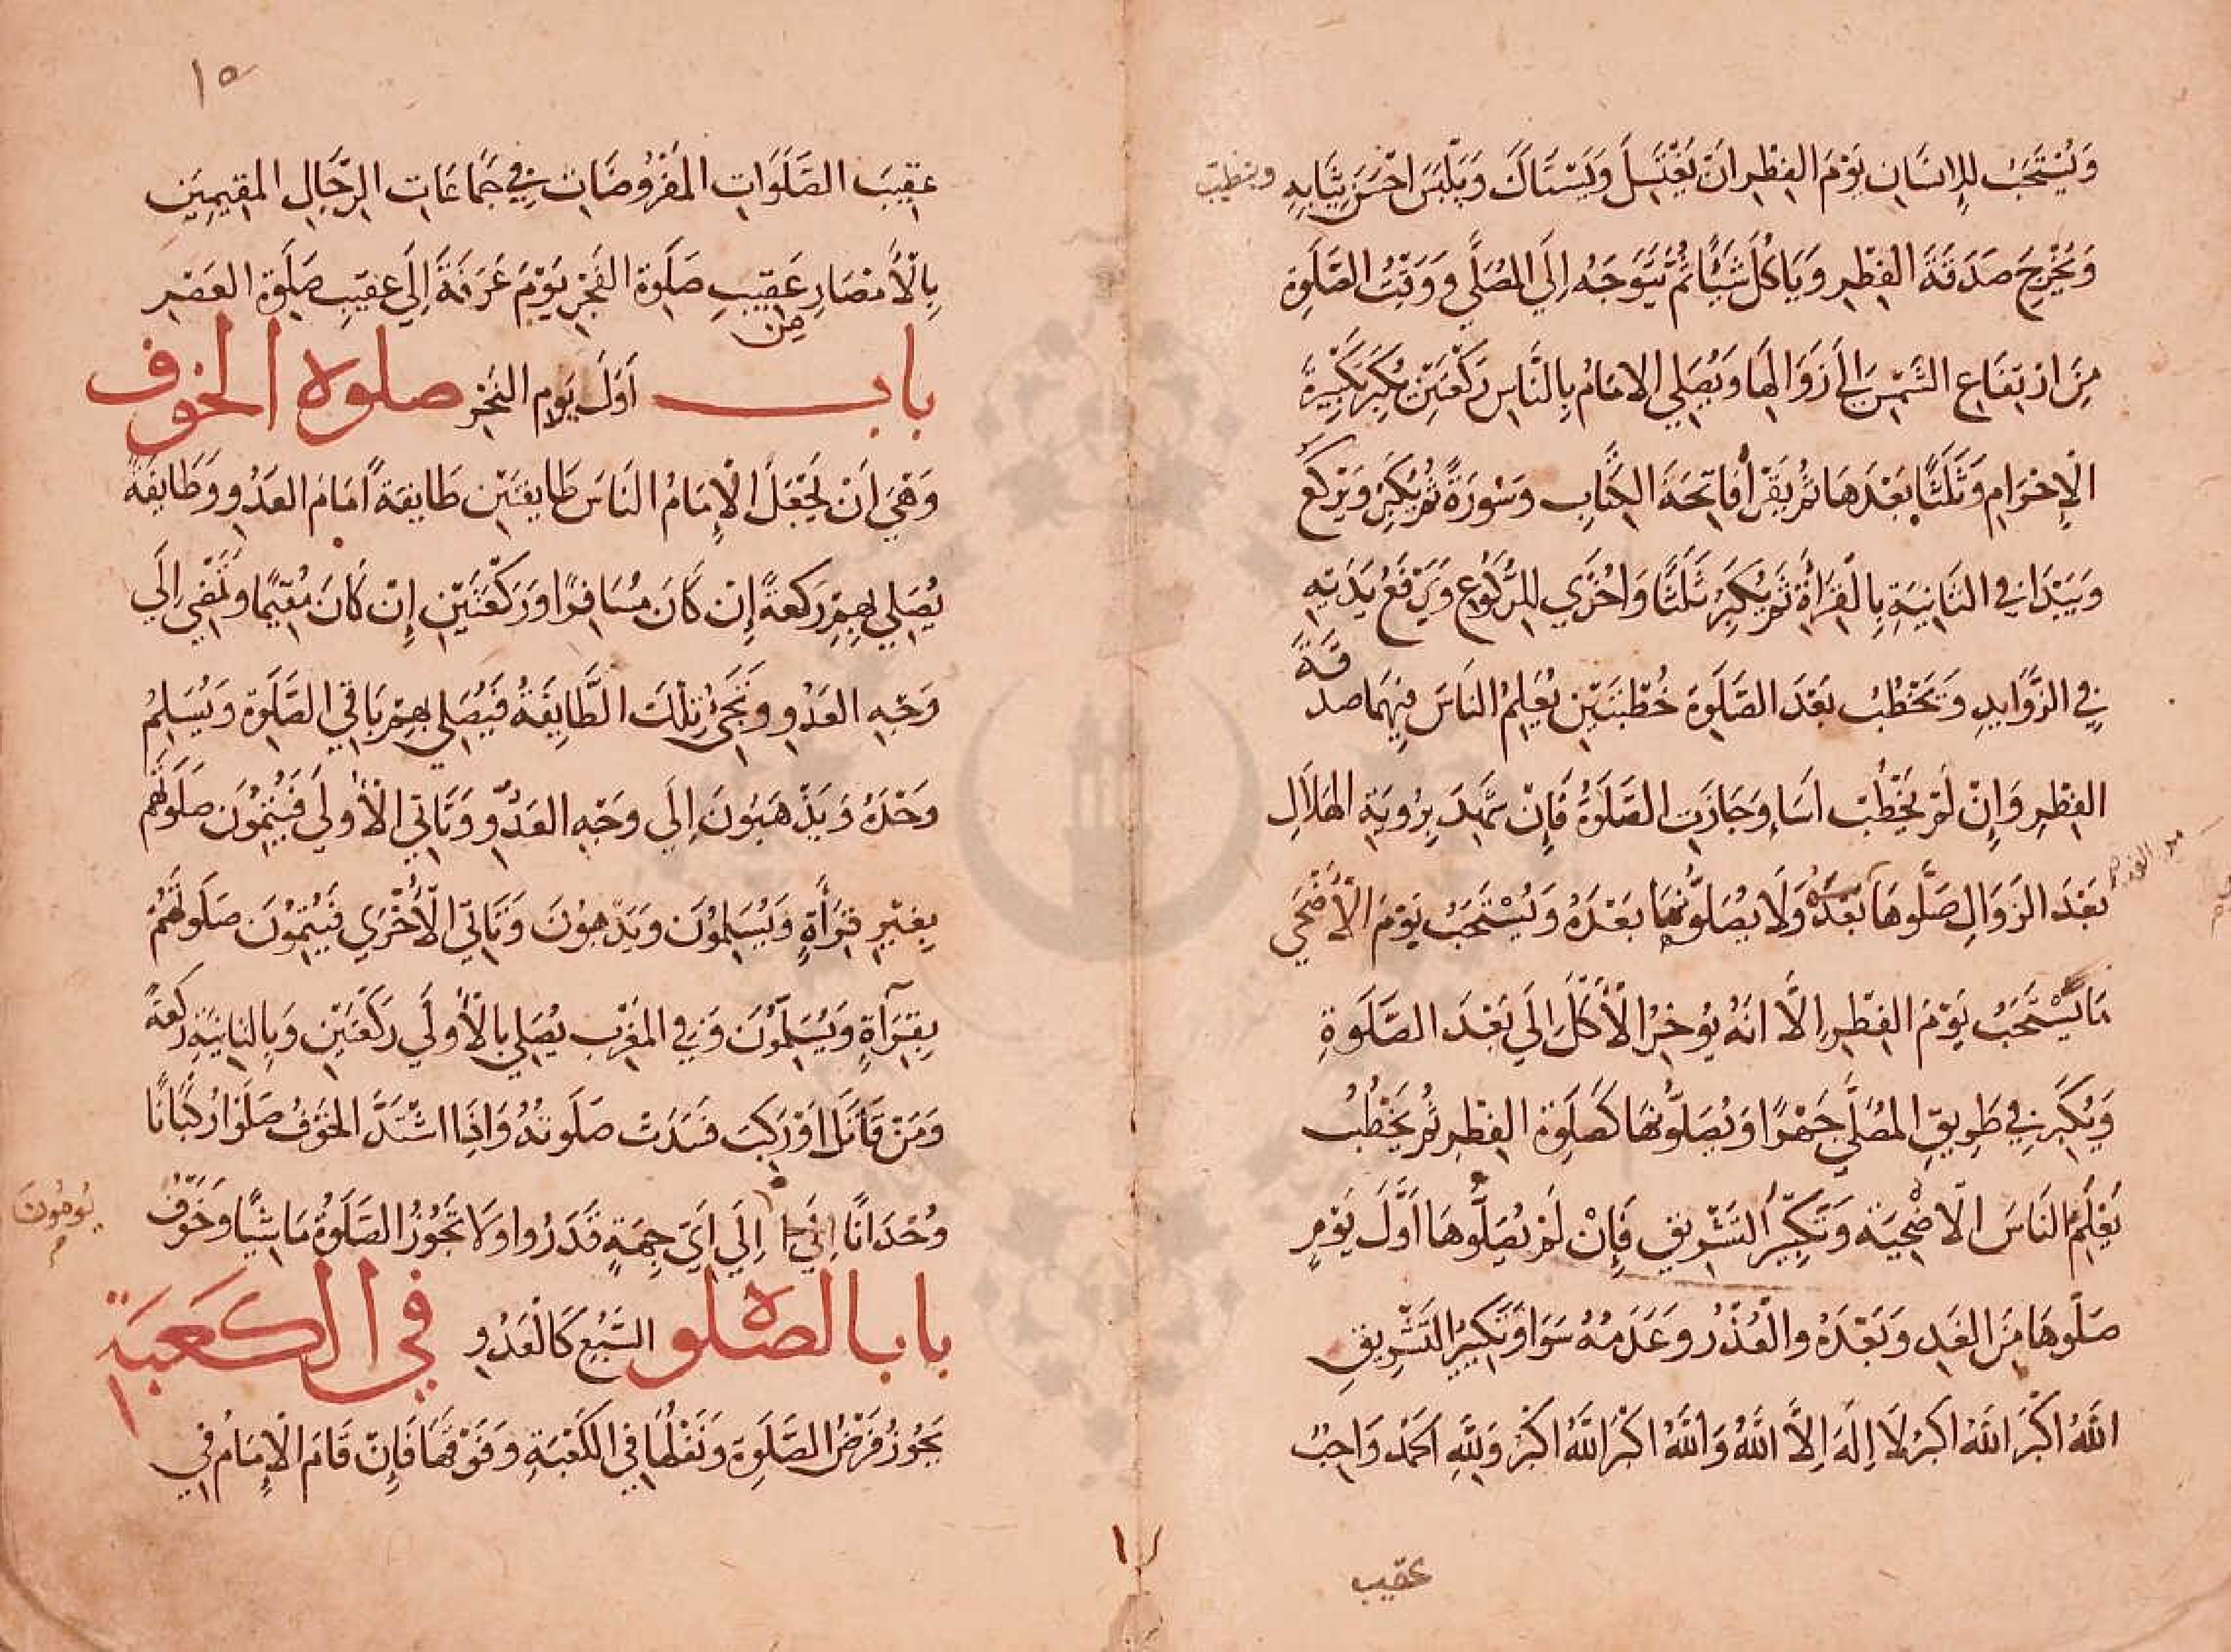 وَيُسْتَحَبُّ لِلإِنسَانِ يَوْمَ الفِطْرِ اَنْ يَغْتَسِلَ وَيَسْتَاكَ وَيَلْبَسَ اَحْسَنَ ثِيَابِهِ ويتطيب
وَيُخْرِجَ صَدَقَةَ الفِطْرِ وَيَاكُلَ شَيْئًا ثُمَّ يَتَوَجَهُ اِلَي المُصَلَّي وَوَقْتُ الصَّلَوةِ
مِنَ ارْتِفَاعِ الشَّمْسِ اِلَى زَوَالِهَا وَيُصَلِي الاِمَامُ بِالنَّاسِ رَكْعَتَيْنِ يُكَبِّرُ تَكْبِيْرَةً
الْاِحْرَامِ وَثَلَثًا بَعْدَهَا ثُمَّ يَقْرَأُ فَاتِحَةَ الكِتَابِ وَسُورَةً ثُمَّ يُكَبِّرُ وَيَرْكَعُ
وَيَبْدَا فِي الثَانِيَةِ بِالقِرَاْةِ ثُمَّ يُكَبِّرُ ثَلَثًا وَاُخْرَي لِلرُّكُوْعِ وَيَرْفَعُ يَدَيْهِ
فِي الزَّوَايِدِ وَيَخْطُبُ بَعْدَ الصَّلَوةِ خُطْبَتَيْنِ يُعَلِّمُ النَاسَ فِيْهِمَا صدقَةَ
الفِطْرِ وَاِنْ لَمْ يَخْطُبْ اَسَاءَ وَجَازَتِ الصَّلَوةُ فَاِنْ شَهِدَ بِرُويَةِ الهِلَالِ
بَعْدَ الزَوَالِ صَلُّوهَا بَعْدَهُ وَلَا يُصَلُّوْنَهَا بَعْدَهُ وَيُسْتَحَبُ يَوْمَ الْاَضْحَي
مَا يُسْتَحَبُ يَوْمَ الفِطْرِ اِلَّا اَنَهُ يُوخِرُ الْاَكْلَ اِلَي بَعْدَ الصَّلَوةِ
وَيُكَبِّرُ فِي طَرِيقِ المُصَلَّي جَهْرًا وَيُصَلُّوْنَهَا كَصَلَوةِ الفِطْرِ ثُمَّ يَخْطُبُ
يُعَلِمُ النَاسَ الْاُضْحِيَةَ وَتَكْبِيْرَ التَشْرِيقِ فَاِنْ لَمْ يُصَلُّوهَا اَوَّلَ يَوْمٍ
صَلُّوهَا مِنَ الغَدِ وَبَعْدَهُ وَالْعُذْرُ وَعَدَمُهُ سَوَا وَتَكْبِيْرُ التَّشْرِيقِ
اَللهُ اَكْبَرُ اللهُ اَكبَرُ لَا اِلَهَ اِلاَّ اللهُ وَاللهُ اَكْبَرُ اللهُ اَكْبَرُ وَلِلَّهِ الحَمْدُ وَاجِبٌ
عقيب
١٥
عقِيْبَ الصَّلَوَاتِ المَفْرُوضَاتِ فِي جَمَاعَاتِ الرِّجَالِ المقِيمِينَ
بِالْاَمْصَارِ مِن عَقِيْبِ صَلَوةِ الفَجْرِ يَوْمَ عَرَفَةَ اِلَى عقِيْبِ صَلَوةِ العَصْرِ
باب اَوَلَ يَوْمِ النَحْرِ صلوة الخوف
وَهِيَ اَنْ يَجْعَلَ الْاِمَامُ النَاسَ طَايِفَتَيْنِ طَايِفَةً اَمَامَ العَدُوِ وَطَايِفَةً
يُصَلِي بِهِمْ رَكعَةً اِنْ كَانَ مُسَافِرًا وَرَكْعَتَيْنِ اِنْ كَانَ مُقِيْمًا وَتَمْضِي اِلَي
وَجْهِ العَدُوِ وَتَجِيْءُ تِلْكَ الطَّايِفَةُ فَيُصَلِي بِهِمْ بَاقِي الصَّلَوةِ وَيُسَلِمُ
وَحْدَهُ وَيَذْهَبُونَ اِلَي وَجْهِ العَدُوِّ وَتَاتِي الْاُولَي فَيُتِمُّوْنَ صَلَوتَهُمْ
بِغَيْرِ قِرَاَةٍ وَيُسَلِمُوْنَ وَيَذْهَبُونَ وَتَاتِي الْاُخْرَي فَيُتِمُّوْنَ صَلَوتَهُمْ
بِقِرَآةٍ وَيُسَلِّمُوْنَ وَفِي المَغْرِبِ يُصَلِي بِالْاُولَي رَكْعَتَيْنِ وَبِالثانِيَةِ رَكْعَةً
وَمَنْ قَاتَلَ اَوْ رَكِبَ فَسَدَتْ صَلَوتُهُ وَاِذَا اشْتَدَّ الخَوْفُ صَلَّوْا رُكْبَانًا
وُحْدَانًا اِلَي اَيِّ جِهَةٍ قَدَرُوا وَلَا تَجُوْزُ الصَّلَوةُ مَاشِيًا وَخَوْفُ
يُومُونَ
باب الصلوة السَّبُعِ كَالْعَدُوِ في الكعبة
يَجُوزُ فَرْضُ الصَّلَوةِ وَنَفْلُهَا فِي الكَعْبَةِ وَفَوْقَهَا فَاِنْ قَامَ الْاِمَامُ فِي